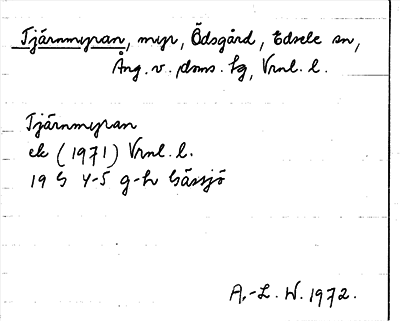 Tjärnmyran, myr, Ödsgård, Edsele sn,
Ång. v. doms. hg, Vrnl. l.
Tjärnmyran
ek (1971) Vrnl. l.
19 G 4-5 g-h Gåssjö
A.-L. W. 1972.